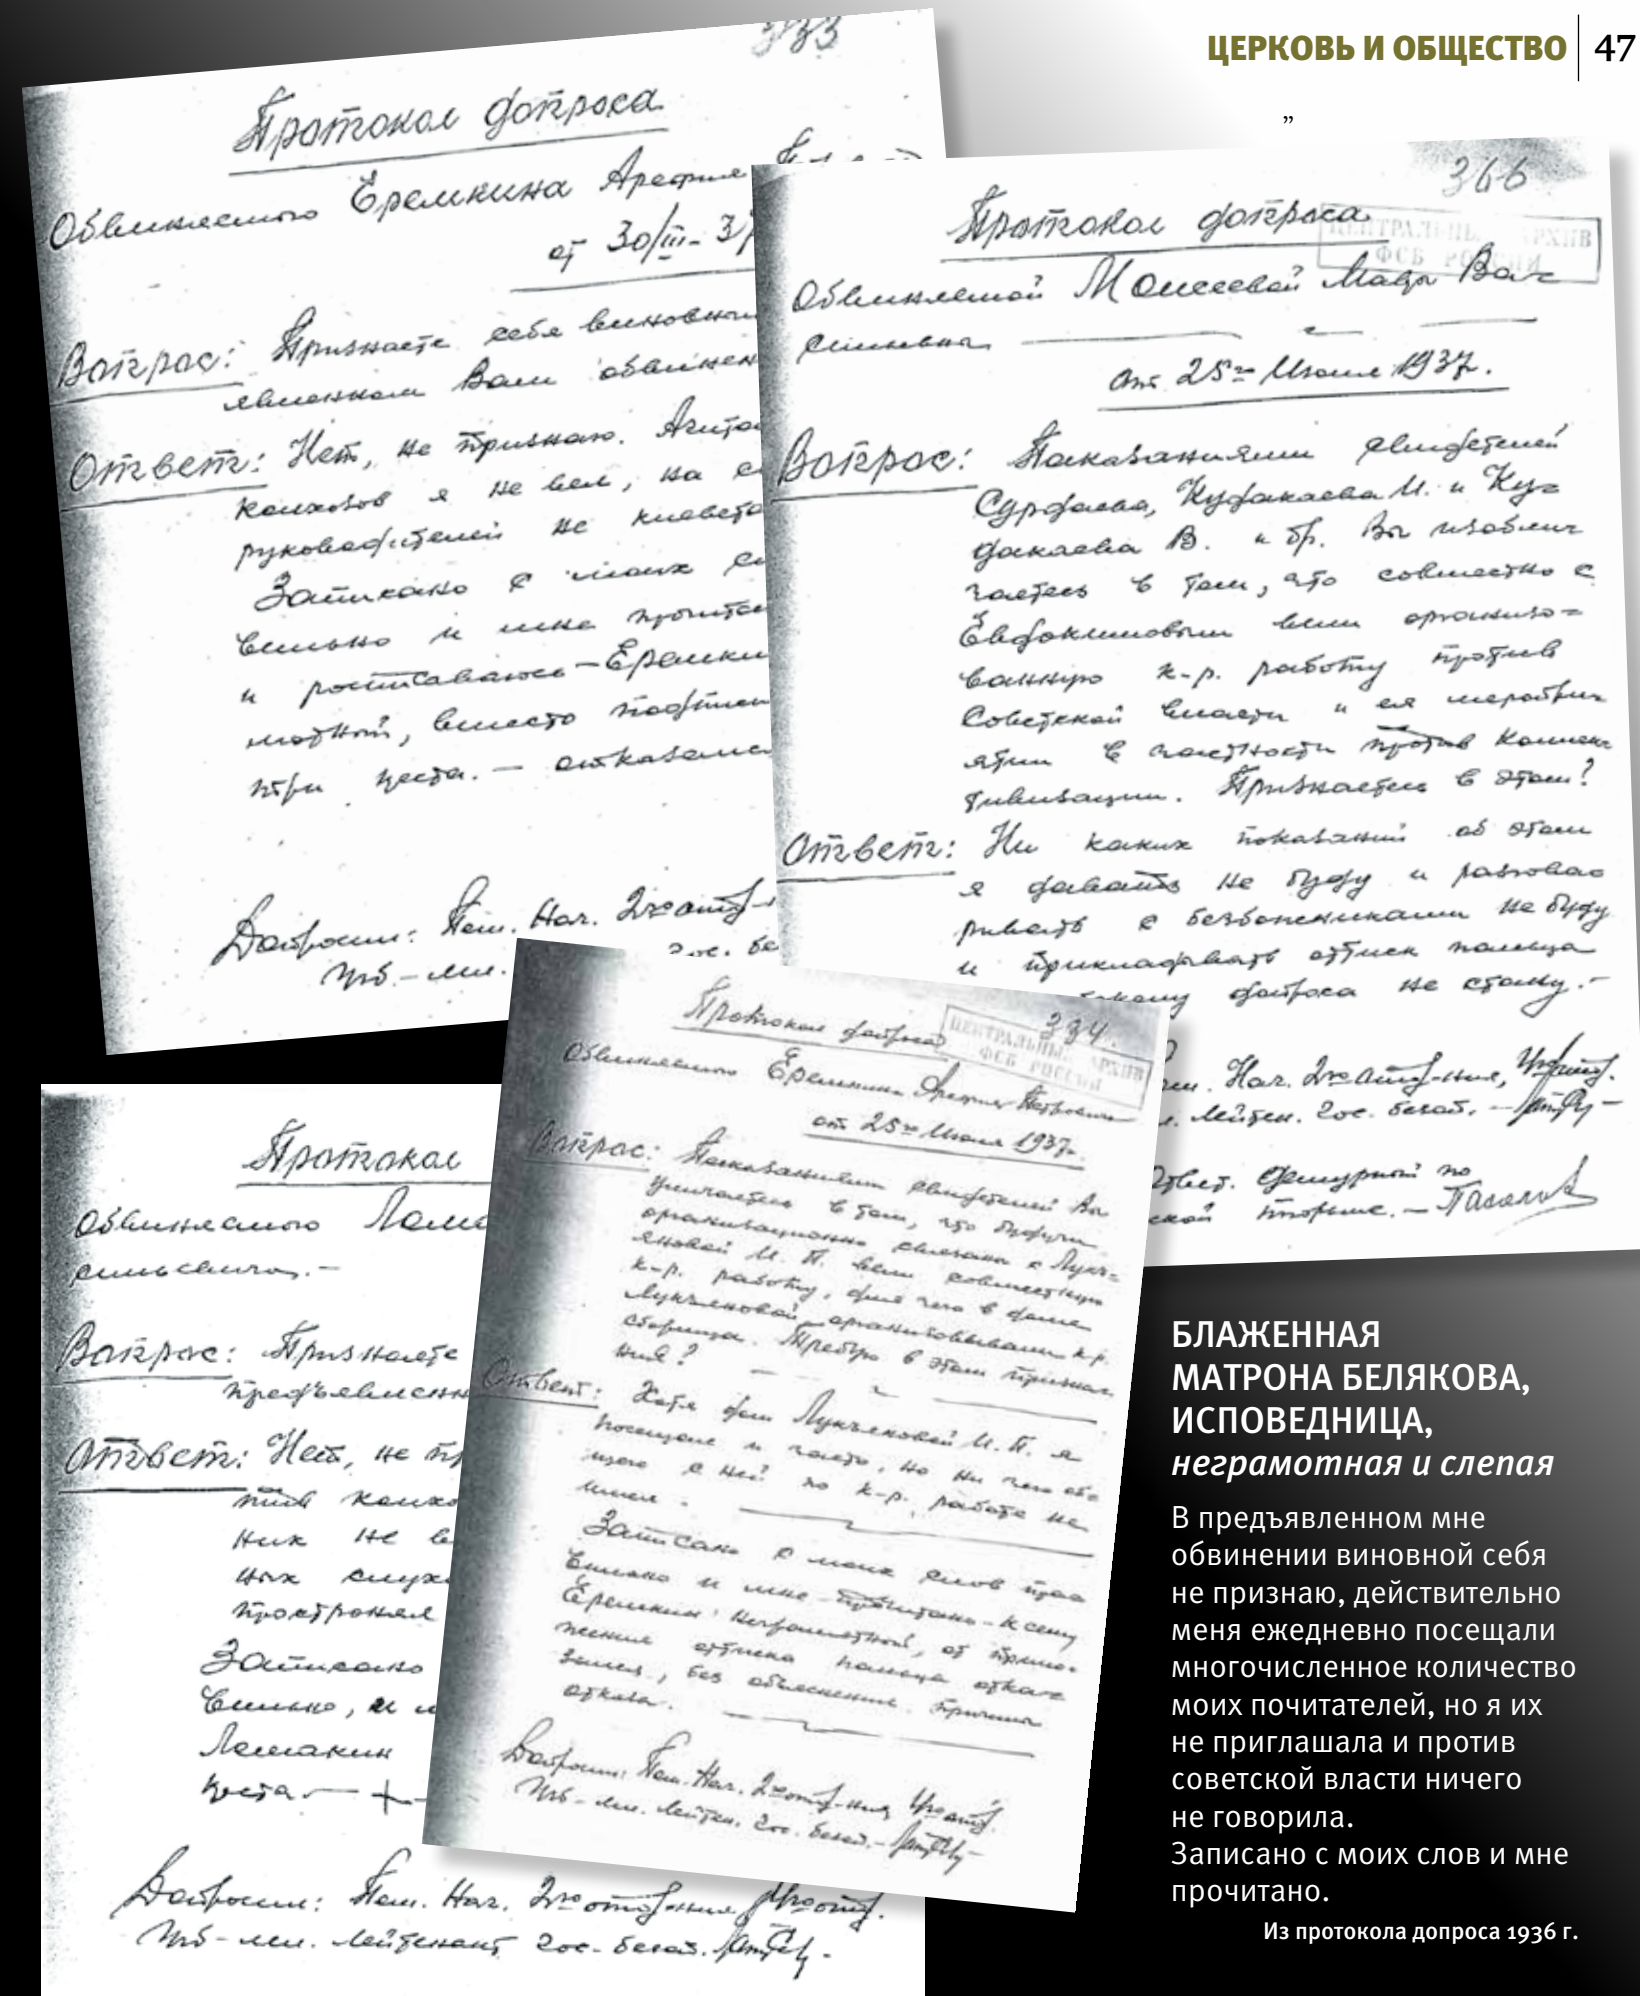 ЦЕРКОВЬ И ОБЩЕСТВО 47
”
333
Протокол допроса
Обвиняемого Еремкина Арефия
от 30/III-37
Вопрос: Признаете себя виновным
явленном Вам обвинен
Ответ: Нет, не признаю. Агита
колхозов я не вел, на
руководителей не клевета
Записано с моих сл
вильно и мне прочитан
и росписываюсь – Еремки
мотный, вместо подписи
три креста. – отказался
Допросил: Пом. Нач. 2го отд-
Угб – мл. гос. бе
366
Протокол допроса
ЦЕНТРАЛЬНЫ АРХИВ
ФСБ РОССИИ
Обвиняемой Моисеевой Мавры Ва-
сильевны
от 25го Июля 1937г.
Вопрос: Показаниями свидетелей
Сурдаева, Кудакаева И. и Ку=
дакаева В. и др. Вы изоблич
чаетесь в том, что совместно с
Евдокимовым вели организо=
ванную к-р. работу против
Советской власти и ея мероприя
ятий в частности против коллек
тивизации. Признаетесь в этом?
Ответ: Ни каких показаний об этом
я давать не буду и разгова
ривать с безбожниками не буду
и прикладывать оттиск пальца
допроса не стану. –
Нач. 2го отд-ния,
Лейтен. гос. безоп. –
Ответ. дежурный по
ской тюрьме. –
334.
Протокол допроса
ЦЕНТРАЛЬНЫ АРХИВ
ФСБ РОССИИ
Обвиняемого Еремкина Арефия Петровича
от 25го Июля 1937г.
Вопрос: Показаниями свидетелей Вы
уличаетесь в том, что будучи
организационно связаны с Лукь=
яновой И. П. вели совместную
к-р. работу, для чего в доме
Лукьяновой организовывали к.р.
сборища. Требую в этом призна
ния?
Ответ: Хотя дом Лукьяновой И. П. я
посещал и часто, но ни чего об
щего с ней по к-р. работе не
имел.
Записано с моих слов пра
вильно и мне прочитано – к сему
Еремкин неграмотный, от прило=
жения оттиска пальца отка=
зался, без объяснения причины
отказа.
Допросил: Пом. Нач. 2го отд-ния
Угб – мл. Лейтен. гос. безоп. –
Протокол
Обвиняемого Лома
сильевича. –
Вопрос: Признаете
предъявленн
Ответ: Нет, не пр
тив колхо
них не ве
ных слухо
пространял
Записано
вильно, и м
Ломакин
креста – + –
Допросил: Пом. Нач. 2го отд-ния
Угб – мл. лейтенант гос. безоп.
БЛАЖЕННАЯ
МАТРОНА БЕЛЯКОВА,
ИСПОВЕДНИЦА,
неграмотная и слепая
В предъявленном мне
обвинении виновной себя
не признаю, действительно
меня ежедневно посещали
многочисленное количество
моих почитателей, но я их
не приглашала и против
советской власти ничего
не говорила.
Записано с моих слов и мне
прочитано.
Из протокола допроса 1936 г.